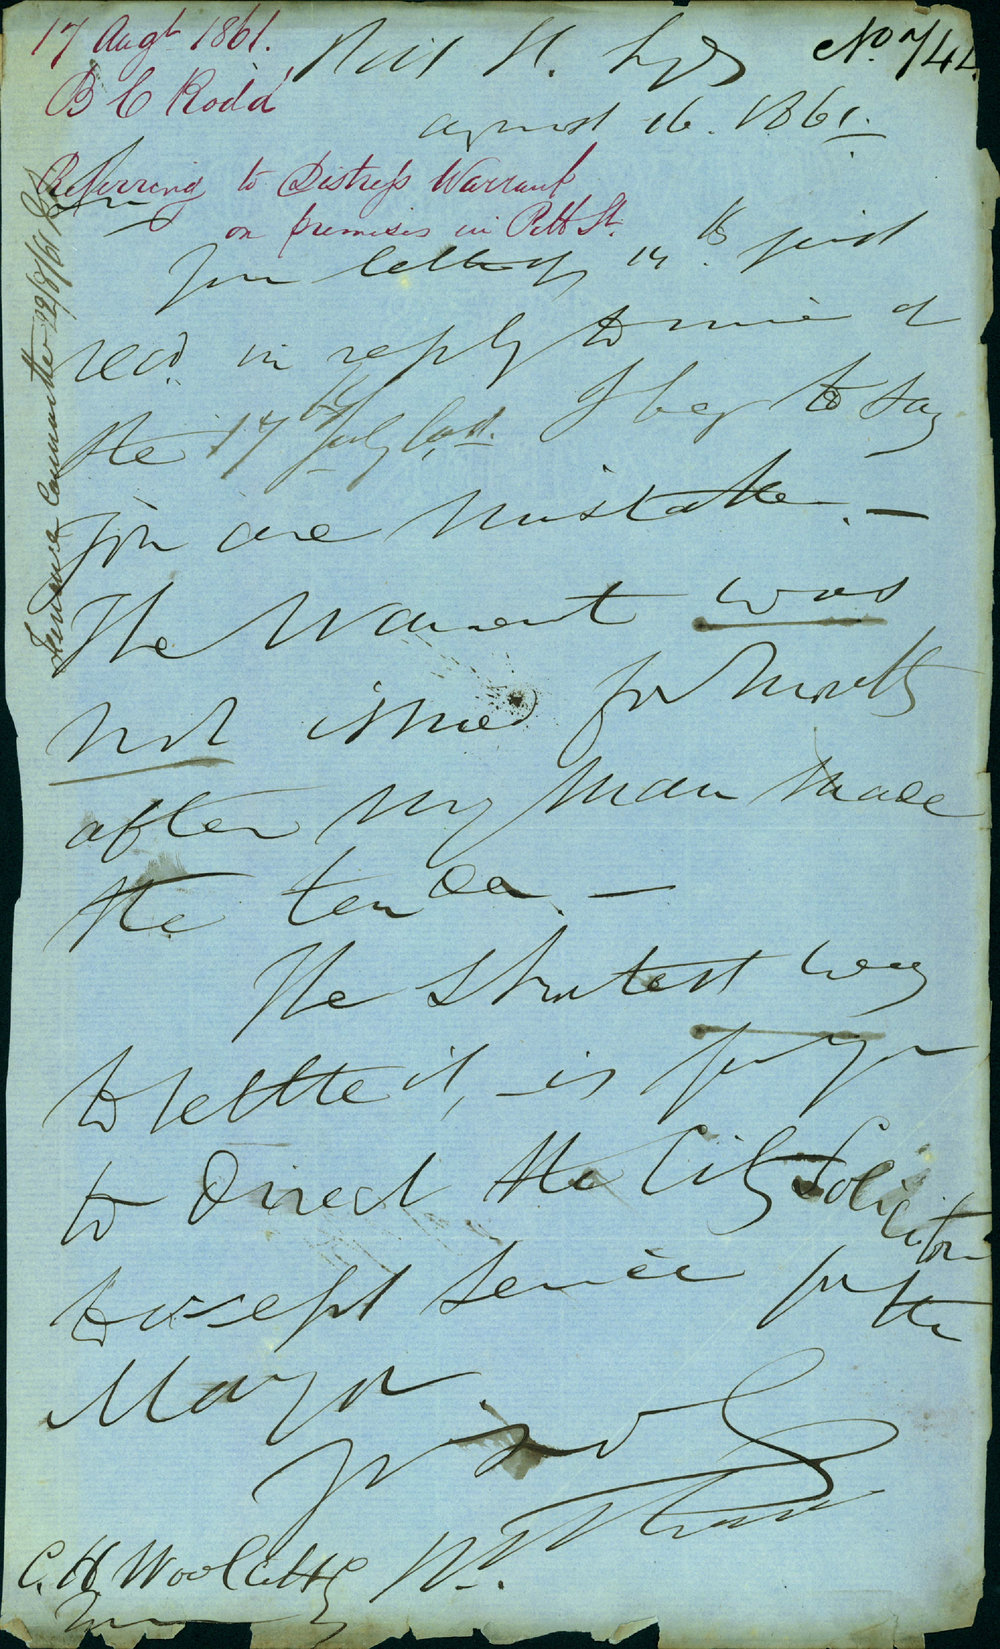 17 Augt 1861.
B C Rodd
Referring to Distress Warrant
on premises in Pitt St.
No 744
Pitt St. Syd
August 16. 1861.
Sir
Your letter of 14th just
recd. in reply to mine of
the 17th July last. I beg to say
you are mistaken. —
The Warrant was
not issued for months
after my man made
the tender. —
The shortest way
to settle it, is for you
to direct the City Solicitor
to accept service for the
Mayor.
C. H. Woolcott Esq
Finance Committee 22/8/61